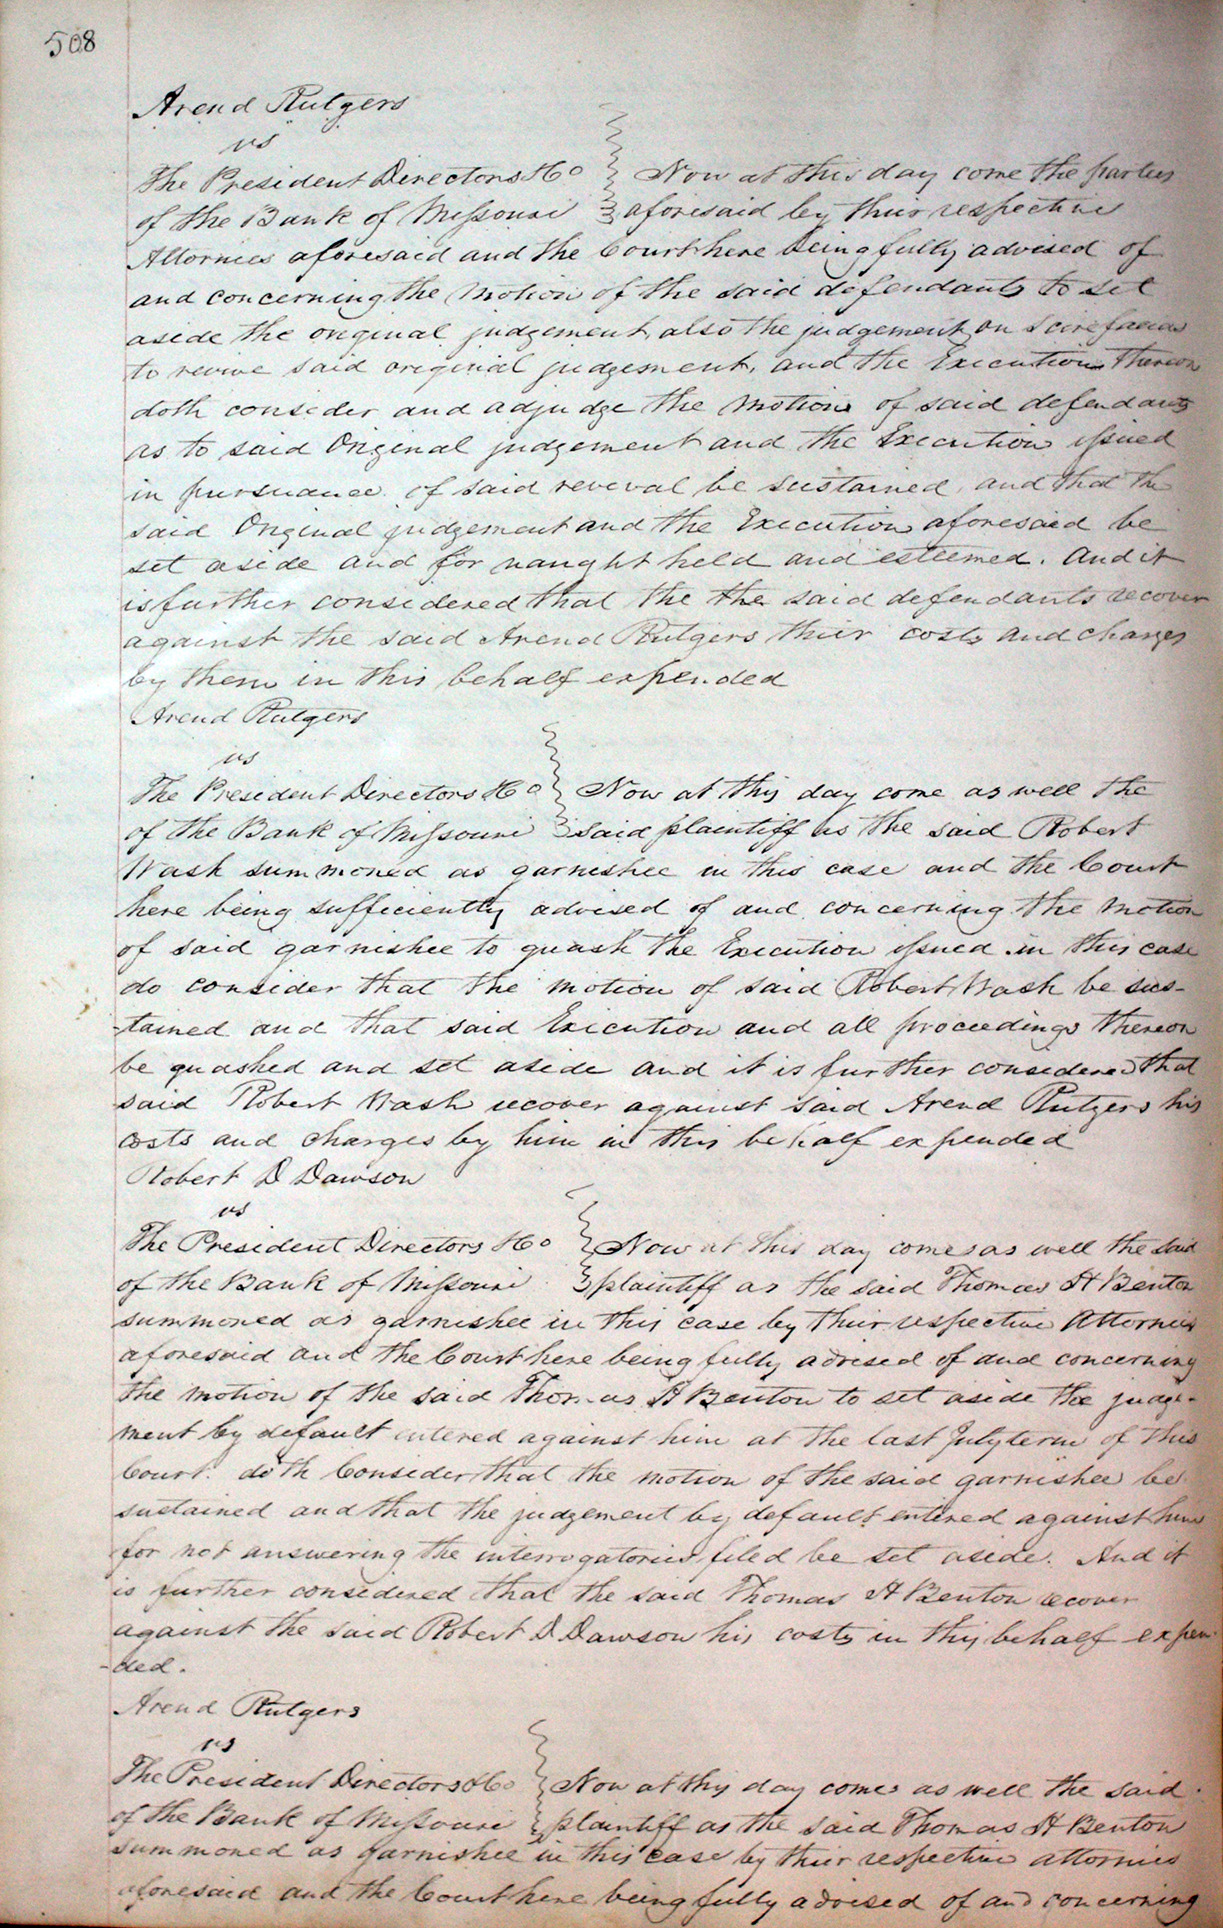 508
Arend Rutgers
vs
The President Directors &Co Now at this day come the parties
of the Bank of Missouri aforesaid by their respective
Attornies aforesaid and the Court here being fully advised of
and concerning the Motion of the said defendants to set
aside the original judgement, also the judgement on Scire facias
to revive said original judgement, and the Execution thereon
doth consider and adjudge the Motion of said defendants
as to said Original judgement and the Execution issued
in pursuance of said revival be sustained, and that the
said Original judgement and the Execution aforesaid be
set aside and for naught held and esteemed. And it
is further considered that the the said defendants recover
against the said Arend Rutgers their costs and charges
by them in this behalf expended
Arend Rutgers
vs
The President Directors &Co Now at this day come as well the
of the Bank of Missouri said plaintiff as the said Robert
Wash summoned as garnishee in this case and the Court
here being sufficiently advised of and concerning the Motion
of said garnishee to quash the Execution issued in this case
do consider that the motion of said Robert Wash be sus-
-tained and that said Execution and all proceedings thereon
be quashed and set aside and it is further considered that
said Robert Wash recover against said Arend Rutgers his
costs and charges by him in this behalf expended
Robert D Dawson
vs
The President Directors &Co Now at this day comes as well the said
of the Bank of Missouri plaintiff as the said Thomas H Benton
summoned as garnishee in this case by their respective Attornies
aforesaid and the Court here being fully advised of and concerning
the motion of the said Thomas H Benton to set aside the judge-
ment by default entered against him at the last July term of this
Court. doth Consider that the motion of the said garnishee be
sustained and that the judgement by default entered against him
for not answering the interrogatories filed be set aside. And it
is further considered that the said Thomas H Benton recover
against the said Robert D. Dawson his costs in this behalf expen-
-ded.
Arend Rutgers
vs
The President Directors &Co Now at this day comes as well the said
of the Bank of Missouri plaintiff as the said Thomas H Benton
summoned as garnishee in this case by their respective attornies
aforesaid and the Court here being fully advised of and concerning